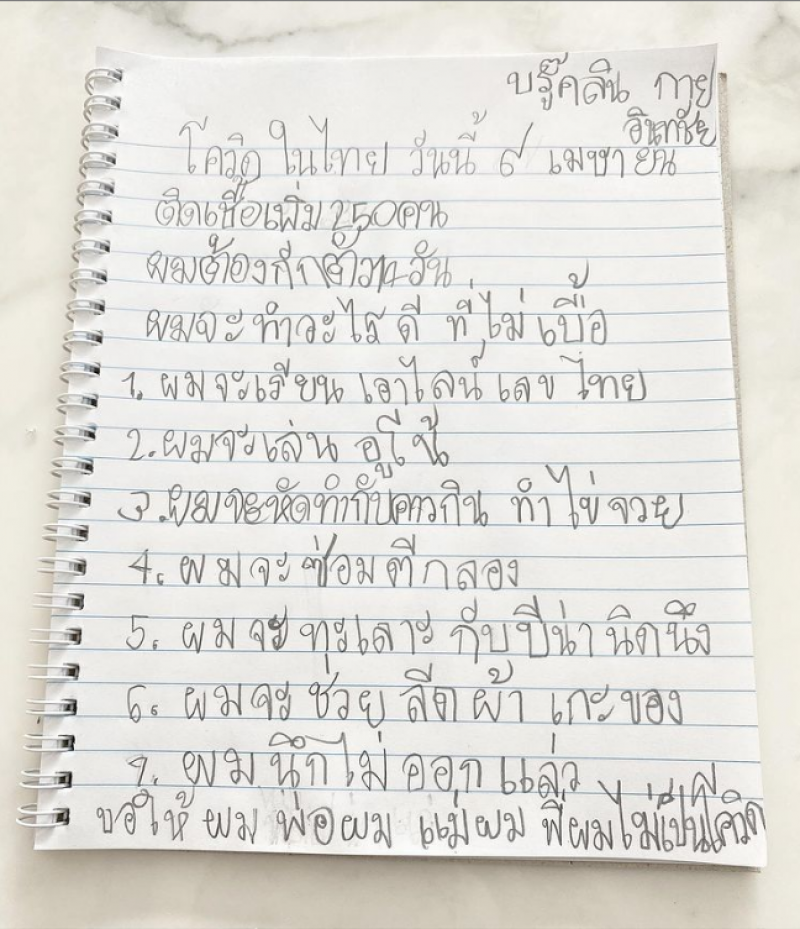 บรู๊คลิน กาย
อินทชัย
โควิด ในไทย วันนี้ ๙ เมษายน
ติดเชื้อเพิ่ม 250 คน
ผมต้องกักตัว 14 วัน
ผมจะทำอะไรดี ที่ไม่เบื่อ
1. ผมจะเรียน เอาไลน์ เลข ไทย
2. ผมจะเล่น อูโน้
3. ผมจะหัดทำกับคาวกิน ทำไข่จวย
4. ผมจะซ่อมตีกลอง
5. ผมจะ ทะเลาะ กับปีน่า นิดนึง
6. ผมจะช่วย ลีดผ้า เกะของ
7. ผมนึกไม่ออกแล่ว
ขอให้ ผม พ่อผม แม่ผม พี่ผมไม่เป็นโควิด